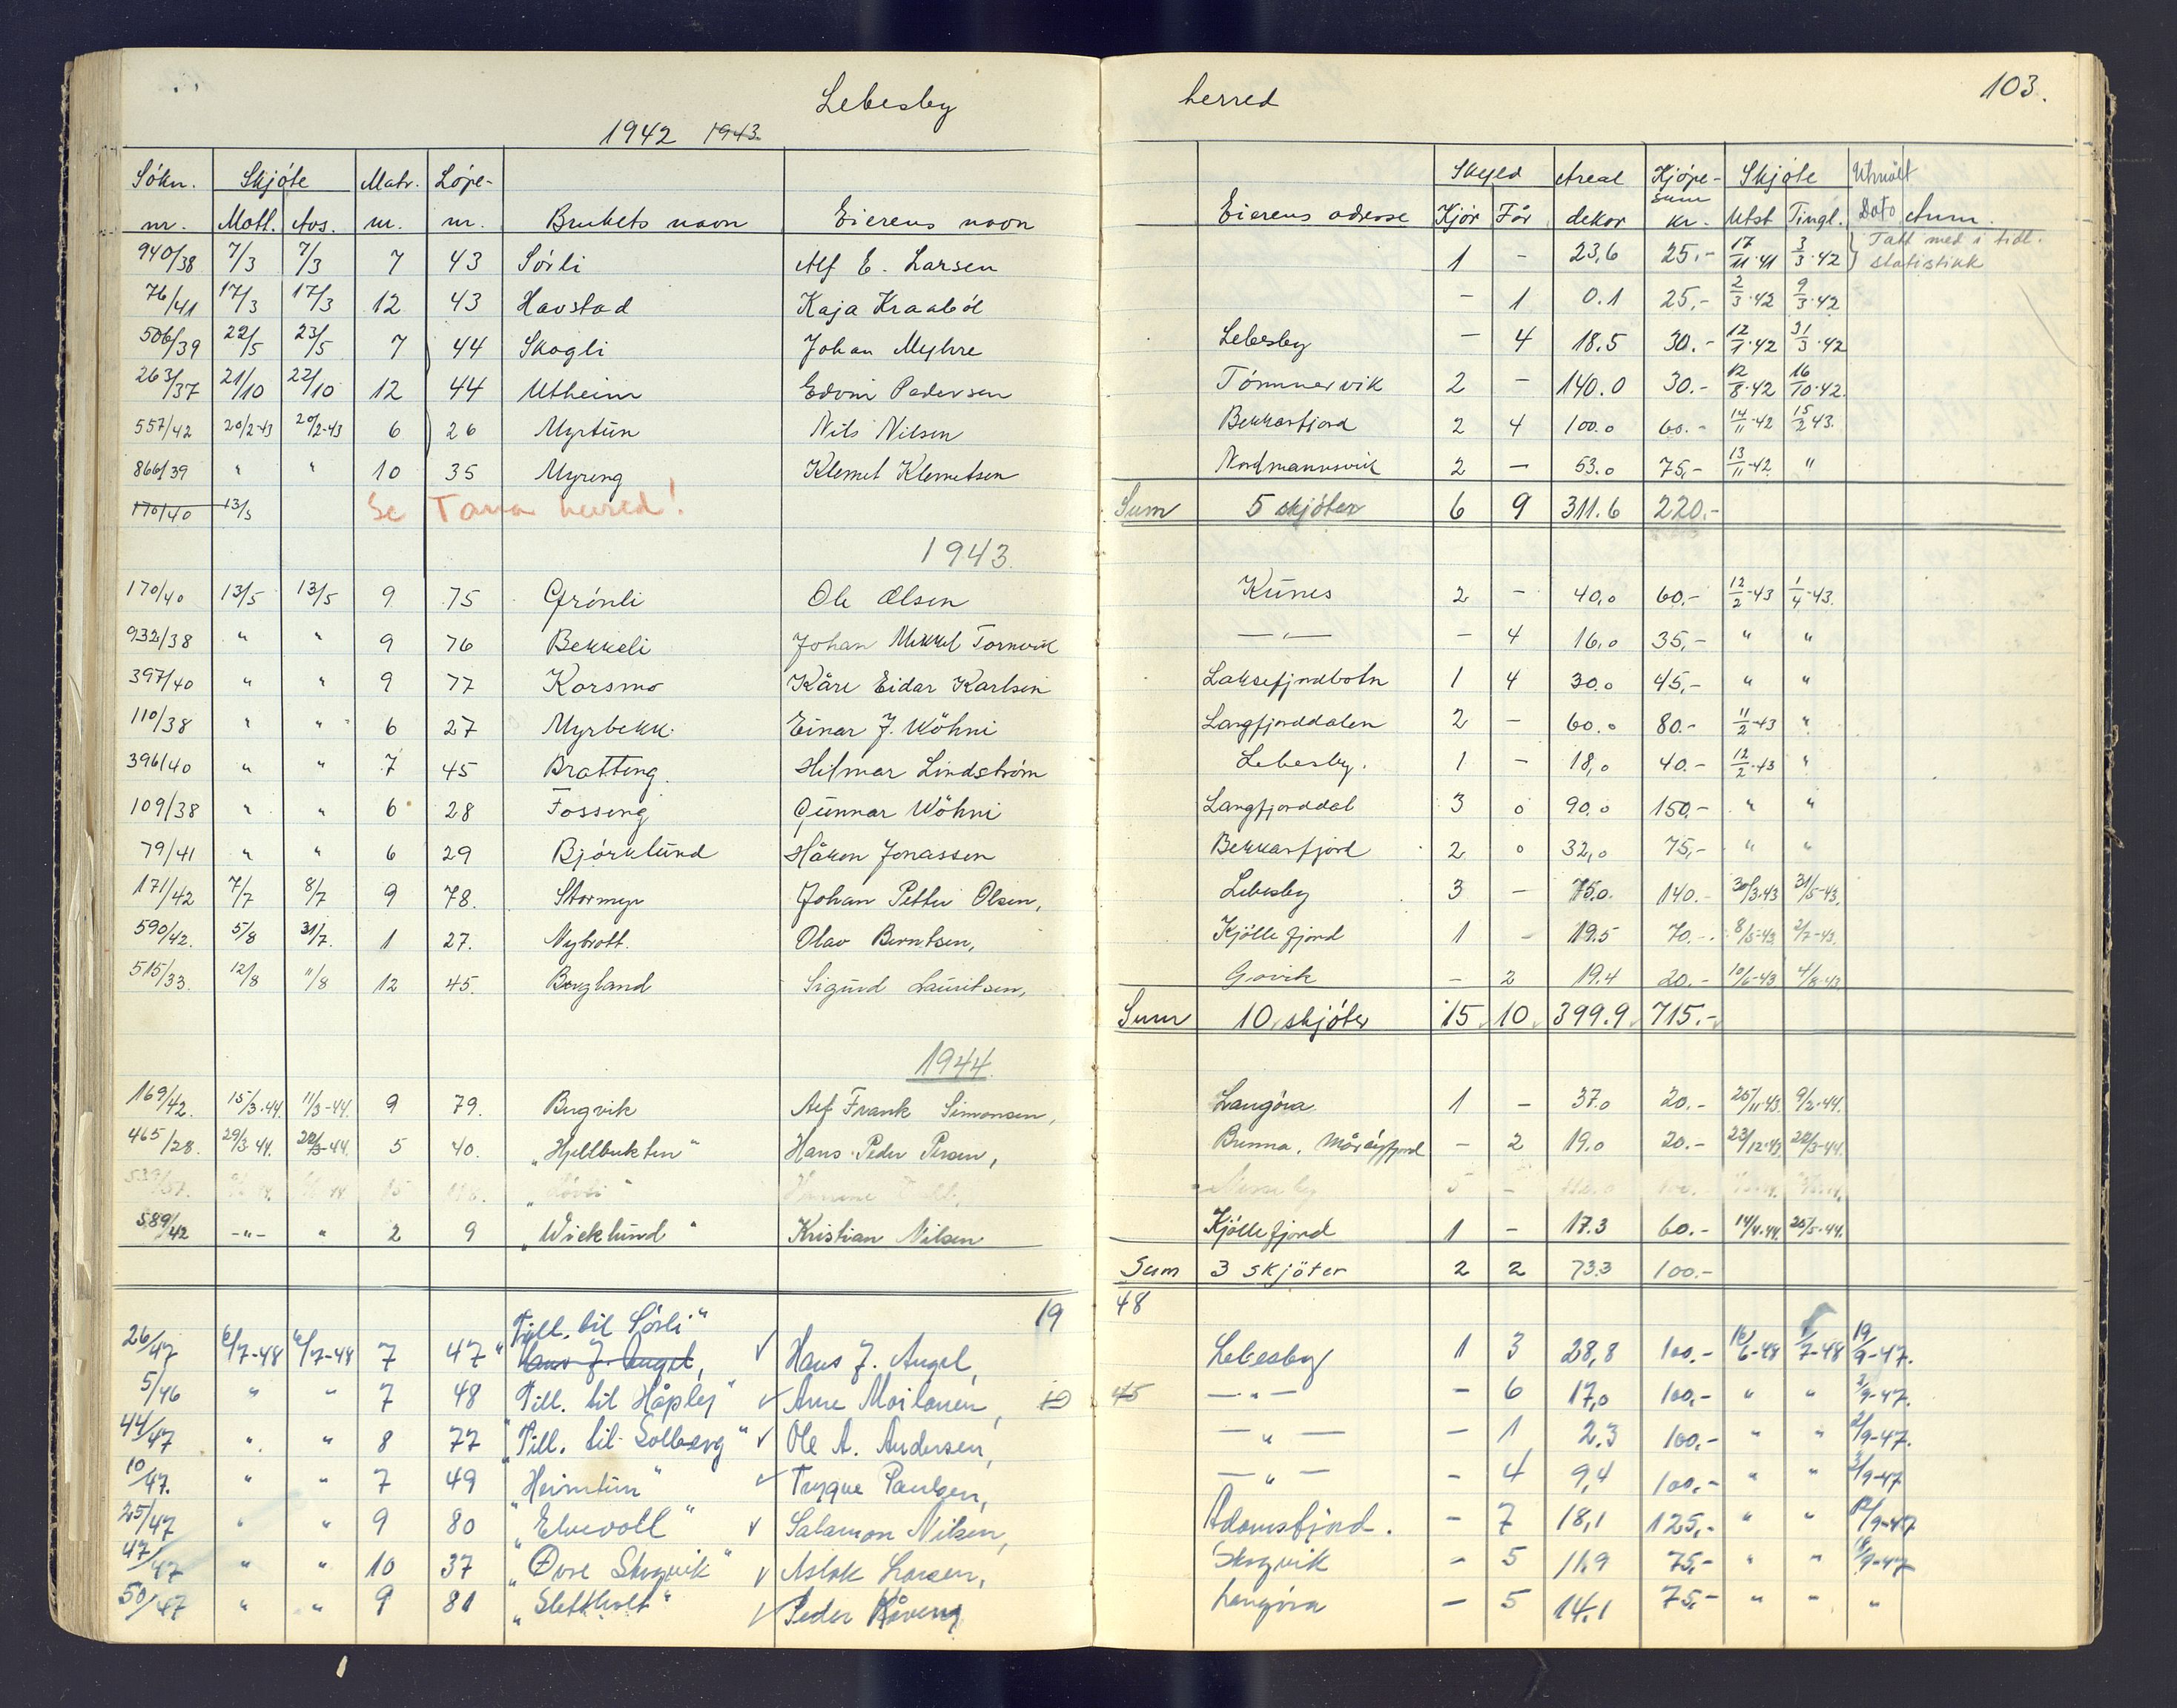 Lebesby herred 103.
1942 1943
Søkn. Skjøte Matr. Løpe- Skyld Areal Kjøpe- Skjøte Utmålt
nr. Mott. Avs. nr. nr. Brukets navn Eierens navn Eierens adresse Kjør Får dekar sum kr. Utst Tingl. Dato Anm.
940/38 7/3 7/3 7 43 Sørli Alf E. Larsen 1 - 23,6 25.- 17/11-41 3/3-42 } Tatt med i tidl. statistikk
76/41 17/3 17/3 12 43 Havstad Kaja Kraabøl - 1 0.1 25.- 2/3-42 9/3-42
506/39 22/5 23/5 7 44 Skogli Johan Myhre Lebesby - 4 18.5 30.- 12/1-42 31/3-42
263/37 21/10 22/10 12 44 Utheim Edvin Pedersen Tømmervik 2 - 140.0 30.- 12/8-42 16/10-42.
557/42 20/2-43 20/2-43 6 26 Myrtun Nils Nilsen Bekkarfjord 2 4 100.0 60.- 14/11-42 15/2 43.
866/39 " " 10 35 Myreng Klemet Klemetsen Nordmannsvik 2 - 53.0 75,- 13/11-42 "
170/40 13/5 Se Tana herred! Sum 5 skjøter 6 9 311.6 220.-
1943.
170/40 13/5 13/5 9 75 Grønli Ole Olsen Kunes 2 - 40,0 60.- 12/2-43 1/4-43.
932/38 " " 9 76 Bekkeli Johan Mikkel Tornvik —"— - 4 16,0 35,- " "
397/40 " " 9 77 Korsmo Kåre Eidar Karlsen Laksefjordbotn 1 4 30.0 45,- " "
110/38 " " 6 27 Myrbekk Einar J. Wøhni Langfjorddalen 2 - 60.0 80.- 11/2-43 "
396/40 " " 7 45 Bratteng. Hilmar Lindstrøm Lebesby. 1 - 18,0 40.- 12/2-43 "
109/38 " " 6 28 Fosseng Gunnar Wøhni Langfjorddal 3 0 90.0 150.- " "
79/41 " " 6 29 Bjørklund Håkon Jonassen Bekkarfjord 2 0 32,0 75,- " "
171/42 7/7 8/7 9 78. Stormyr Johan Petter Olsen, Lebesby 3 - 75.0. 140.- 30/3-43 31/5-43.
590/42. 5/8 31/7. 1 27. Nybrott. Olav Berntsen, Kjøllefjord 1 - 19.5 70.-. 8/5-43. 2/7-43.
515/33. 12/8 11/8 12 45. Bergland Sigurd Lauritsen, - 2 19.4 20.- 10/6-43 4/8-43.
Sum 10 skjøter 15 10 399.9 715.-
1944.
169/42. 15/3-44. 11/3-44. 9 79. Bugvik Alf Frank Simonsen, Langøra 1 - 37.0 20.- 25/11-43. 9/2-44.
465/28. 29/3-44. 22/3-44. 5 40. „Hjellbukten" Hans Peder Persen, - 2 19.0 20.- 23/12-43. 22/3-44.
5 -
589/42 -"- " 2 9 „Wicklund" Kristian Nilsen Kjøllefjord 1 - 17.3 60.- 14/4-44. 25/5-44.
Sum 3 skjøter 2 2 73.3 100.-
19 48
„Till. til Sørli"
26/47 6/7-48 6/7-48 7 47 Hans J. Angel, ✓ Hans J. Angel, Lebesby 1 3 28,8 100.- 16/6-48 1/7-48 19/9-47.
5/46 " " 7 48 Till. til Håpløs" ✓ Arne Moilanen, 19 45 —"— - 6 17,0 100,- " " 3/9-47.
44/47 " " 8 77 „Till. til Solberg" ✓ Ole A. Andersen, —"— - 1 2.3 100.- " " 2/9-47.
10/47. " " 7 49 „Heimtun" ✓ Trygve Paulsen, —"— - 4 9,4 100.- " " 3/9-47
25/47 " " 9 80 „Elvevoll" ✓ Salamon Nilsen, Adamsfjord. - 7 18,1 125,- " " 12/9-47
47/47 " " 10 37 „Øvre Skogvik" ✓ Aslak Larsen, Skogvik - 5 11.9 75,- " " 18/9-47
50/47 " " 9 81 „Slettholt" ✓ Peder Råveng Langøra - 5 14.1 75,- " " "